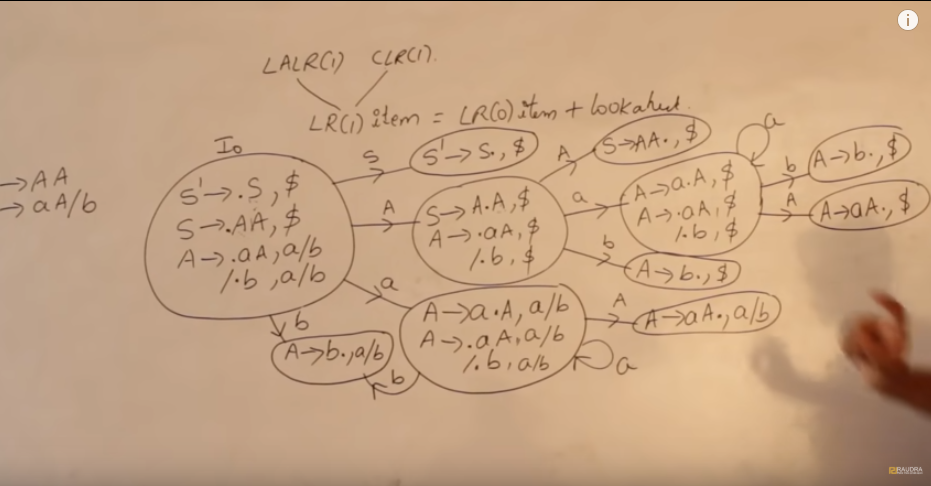 LALR(1) CLR(1).
LR(1) item = LR(0) item + lookahead.
→AA
→aA/b
I₀
S'→.S, $
S→.AA, $
A→.aA, a/b
/.b , a/b
S
S'→S., $
A
S→A.A, $
A→.aA, $
/.b, $
A
S→AA., $
a
A→a.A, $
A→.aA, $
/.b, $
a
b
A→b., $
A
A→aA., $
b
A→b., $
a
A→a.A, a/b
A→.aA, a/b
/.b, a/b
A
A→aA., a/b
a
b
A→b., a/b
b
i
RAUDRA